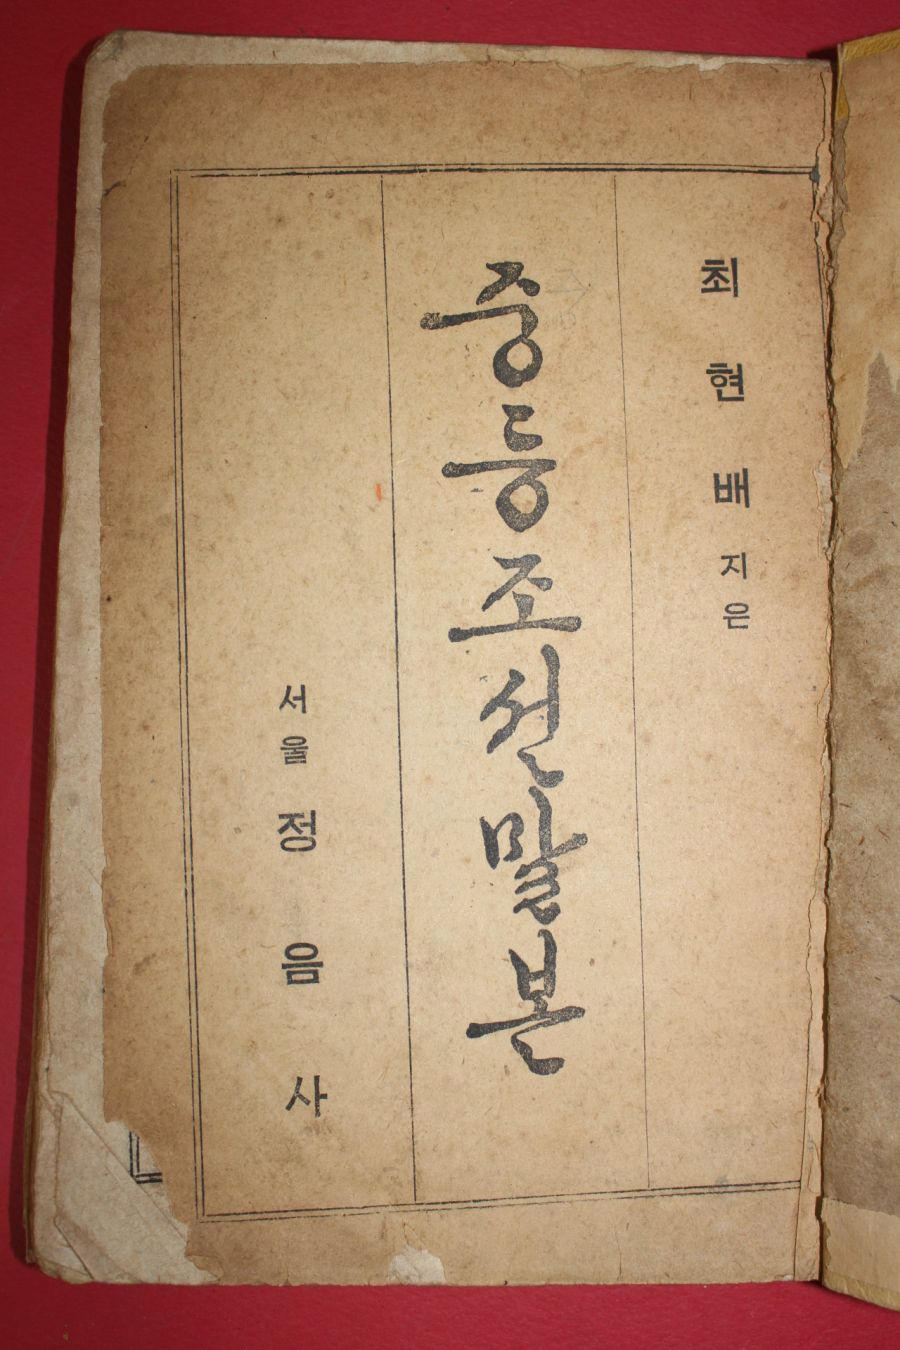 최현배 지은
중등조선말본
서울 정음사